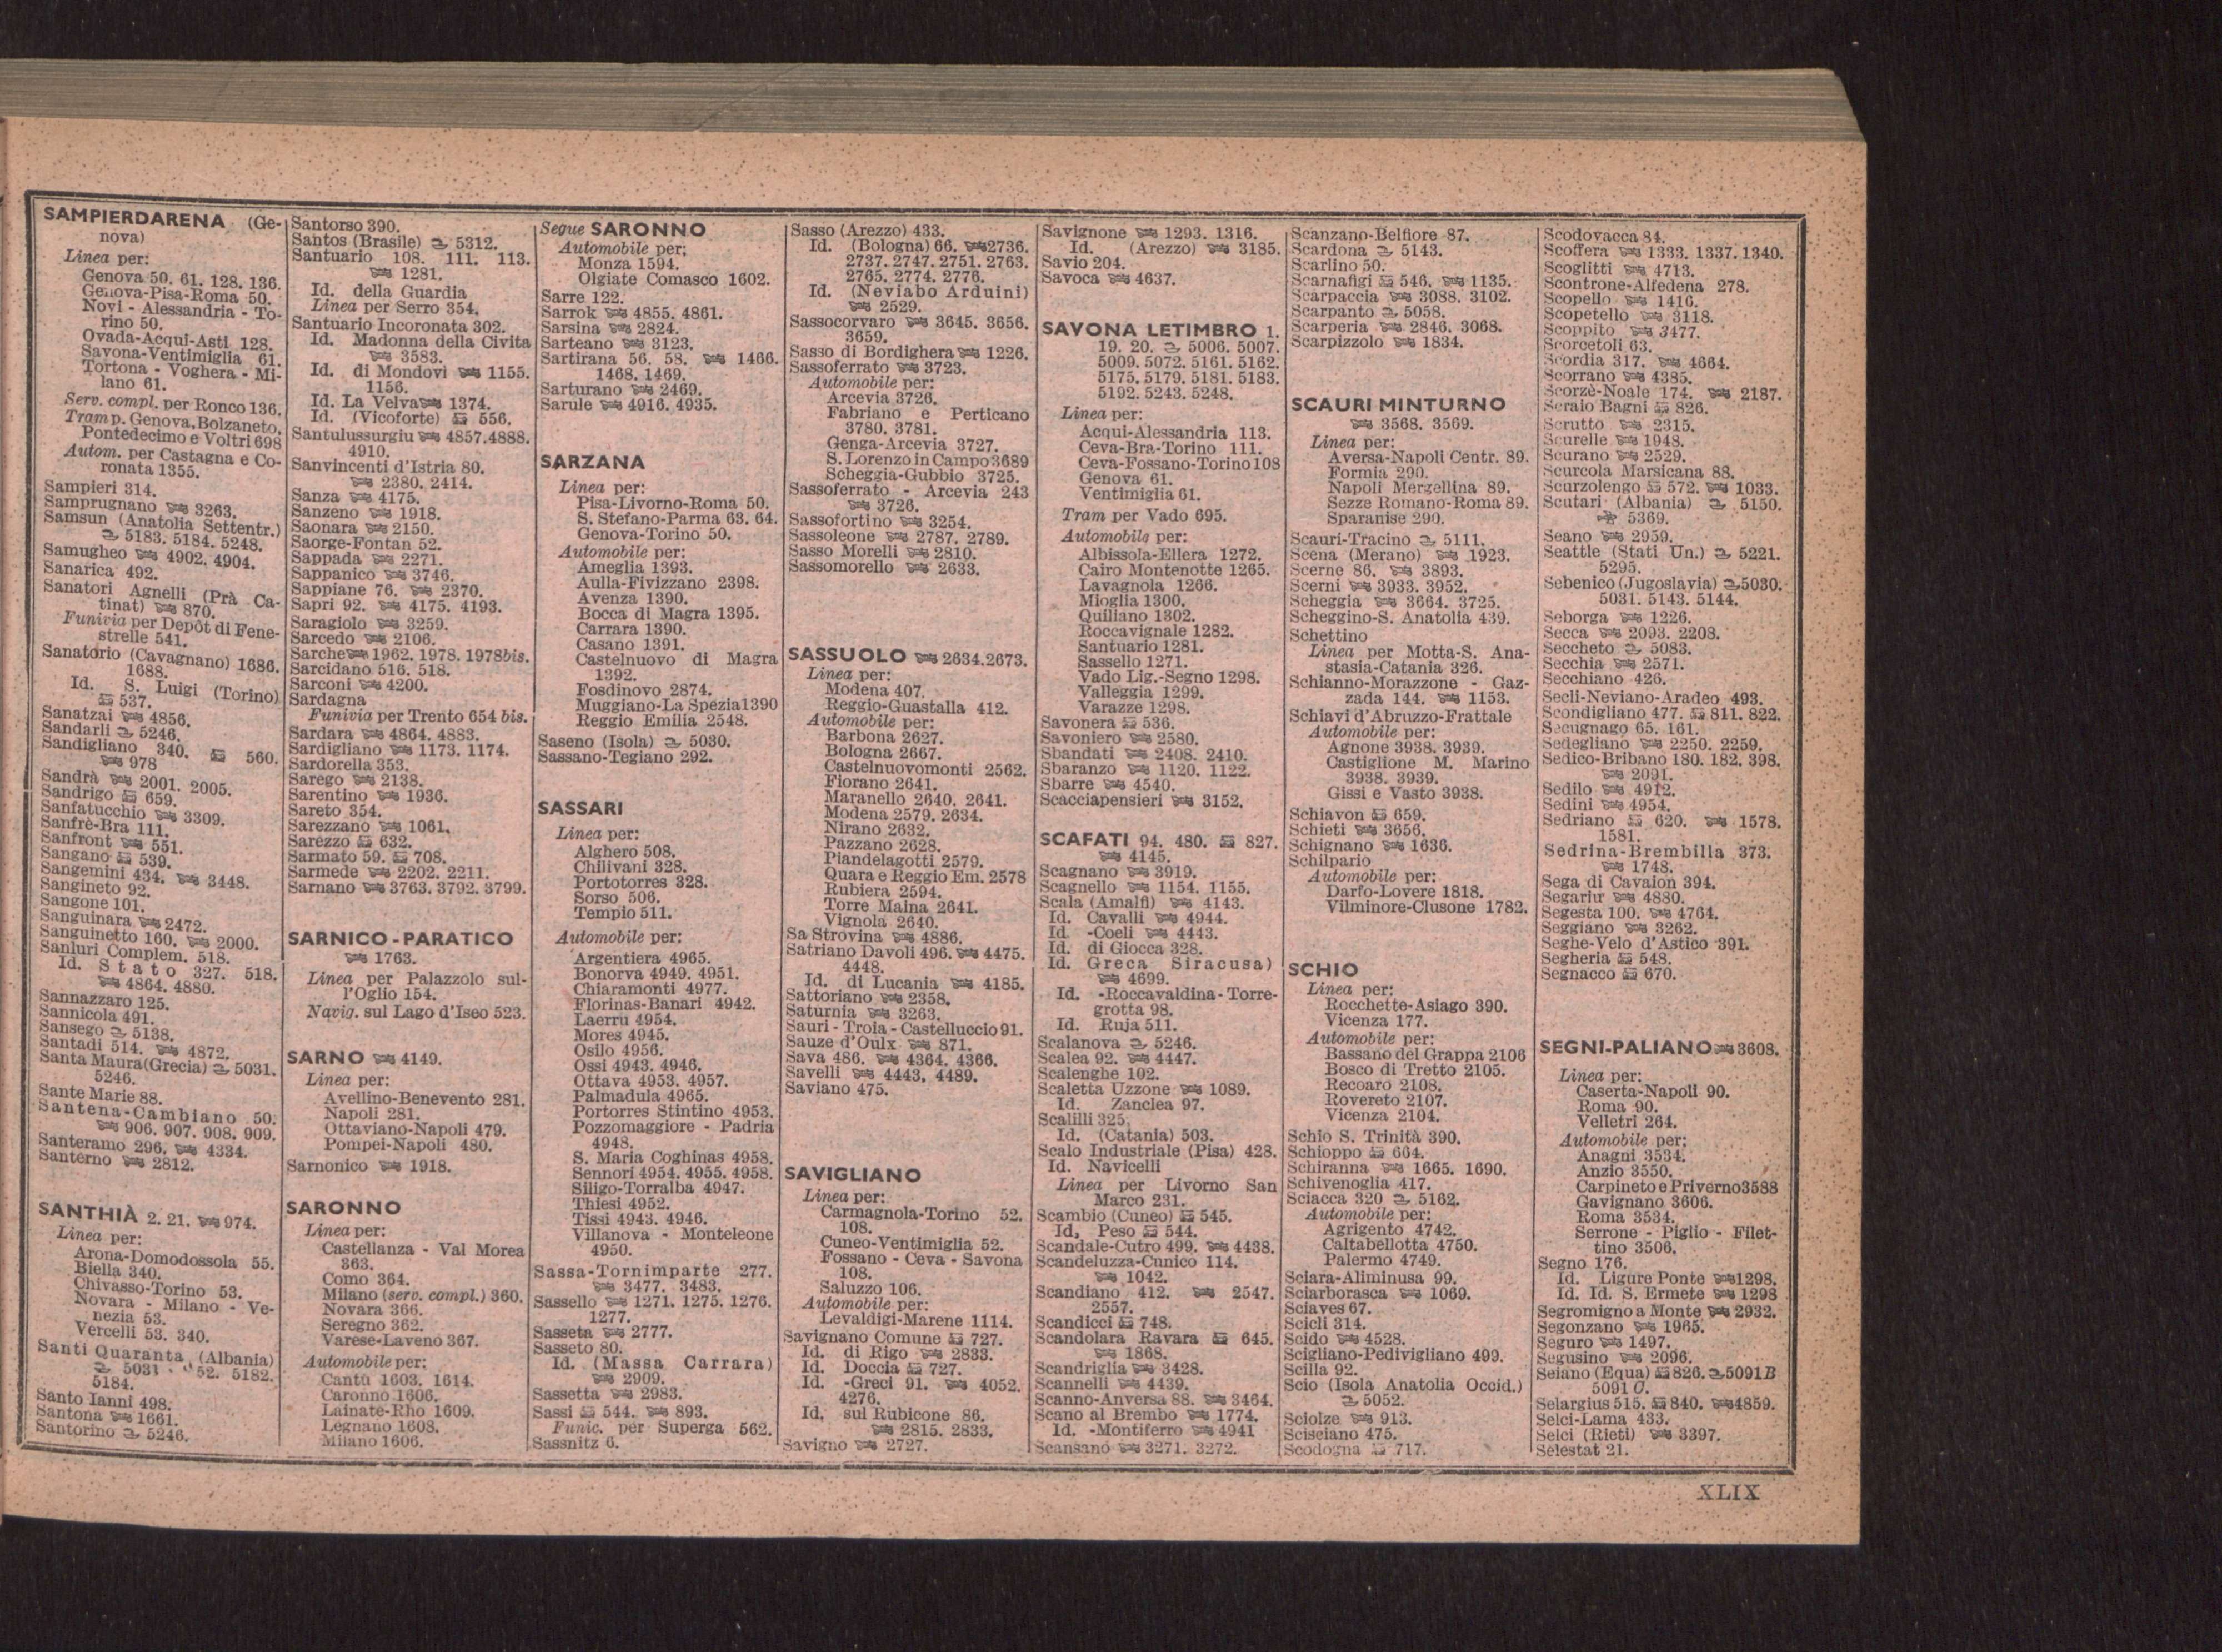 SAMPIERDARENA (Ge-
nova)
Linea per:
Genova 50. 61. 128. 136.
Genova-Pisa-Roma 50.
Novi - Alessandria - To-
rino 50.
Ovada-Acqui-Asti 128.
Savona-Ventimiglia 61.
Tortona - Voghera - Mi-
lano 61.
Serv. compl. per Ronco 136.
Tram p. Genova, Bolzaneto,
Pontedecimo e Voltri 698
Autom. per Castagna e Co-
ronata 1355.
Sampieri 314.
Samprugnano 3263.
Samsun (Anatolia Settentr.)
5183. 5184. 5248.
Samugheo 4902. 4904.
Sanarica 492.
Sanatori Agnelli (Prà Ca-
tinat) 870.
Funivia per Depôt di Fene-
strelle 541.
Sanatorio (Cavagnano) 1686.
1688.
Id. S. Luigi (Torino)
537.
Sanatzai 4856.
Sandarli 5246.
Sandigliano 340. 560.
978
Sandrà 2001. 2005.
Sandrigo 659.
Sanfatucchio 3309.
Sanfrè-Bra 111.
Sanfront 551.
Sangano 539.
Sangemini 434. 3448.
Sangineto 92.
Sangone 101.
Sanguinara 2472.
Sanguinetto 160. 2000.
Sanluri Complem. 518.
Id. Stato 327. 518.
4864. 4880.
Sannazzaro 125.
Sannicola 491.
Sansego 5138.
Santadi 514. 4872.
Santa Maura (Grecia) 5031.
5246.
Sante Marie 88.
Santena-Cambiano 50.
906. 907. 908. 909.
Santeramo 296. 4334.
Santerno 2812.
SANTHIÀ 2. 21. 974.
Linea per:
Arona-Domodossola 55.
Biella 340.
Chivasso-Torino 53.
Novara - Milano - Ve-
nezia 53.
Vercelli 53. 340.
Santi Quaranta (Albania)
5031 52. 5182.
5184.
Santo Ianni 498.
Santona 1661.
Santorino 5246.
Santorso 390.
Santos (Brasile) 5312.
Santuario 108. 111. 113.
1281.
Id. della Guardia
Linea per Serro 354.
Santuario Incoronata 302.
Id. Madonna della Civita
3583.
Id. di Mondovì 1155.
1156.
Id. La Velva 1374.
Id. (Vicoforte) 556.
Santulussurgiu 4857. 4888.
4910.
Sanvincenti d'Istria 80.
2380. 2414.
Sanza 4175.
Sanzeno 1918.
Saonara 2150.
Saorge-Fontan 52.
Sappada 2271.
Sappanico 3746.
Sappiane 76. 2370.
Sapri 92. 4175. 4193.
Saragiolo 3259.
Sarcedo 2106.
Sarche 1962. 1978. 1978bis.
Sarcidano 516. 518.
Sarconi 4200.
Sardagna
Funivia per Trento 654 bis.
Sardara 4864. 4883.
Sardigliano 1173. 1174.
Sardorella 353.
Sarego 2138.
Sarentino 1936.
Sareto 354.
Sarezzano 1061.
Sarezzo 632.
Sarmato 59. 708.
Sarmede 2202. 2211.
Sarnano 3763. 3792. 3799.
SARNICO - PARATICO
1763.
Linea per Palazzolo sul-
l'Oglio 154.
Navig. sul Lago d'Iseo 523.
SARNO 4149.
Linea per:
Avellino-Benevento 281.
Napoli 281.
Ottaviano-Napoli 479.
Pompei-Napoli 480.
Sarnonico 1918.
SARONNO
Linea per:
Castellanza - Val Morea
363.
Como 364.
Milano (serv. compl.) 360.
Novara 366.
Seregno 362.
Varese-Laveno 367.
Automobile per:
Cantù 1603. 1614.
Caronno 1606.
Lainate-Rho 1609.
Legnano 1608.
Milano 1606.
Segue SARONNO
Automobile per:
Monza 1594.
Olgiate Comasco 1602.
Sarre 122.
Sarrok 4855. 4861.
Sarsina 2824.
Sarteano 3123.
Sartirana 56. 58. 1466.
1468. 1469.
Sarturano 2469.
Sarule 4916. 4935.
SARZANA
Linea per:
Pisa-Livorno-Roma 50.
S. Stefano-Parma 63. 64.
Genova-Torino 50.
Automobile per:
Ameglia 1393.
Aulla-Fivizzano 2398.
Avenza 1390.
Bocca di Magra 1395.
Carrara 1390.
Casano 1391.
Castelnuovo di Magra
1392.
Fosdinovo 2874.
Muggiano-La Spezia 1390
Reggio Emilia 2548.
Saseno (Isola) 5030.
Sassano-Tegiano 292.
SASSARI
Linea per:
Alghero 508.
Chilivani 328.
Portotorres 328.
Sorso 506.
Tempio 511.
Automobile per:
Argentiera 4965.
Bonorva 4949. 4951.
Chiaramonti 4977.
Florinas-Banari 4942.
Laerru 4954.
Mores 4945.
Osilo 4956.
Ossi 4943. 4946.
Ottava 4953. 4957.
Palmadula 4965.
Portorres Stintino 4953.
Pozzomaggiore - Padria
4948.
S. Maria Coghinas 4958.
Sennori 4954. 4955. 4958.
Siligo-Torralba 4947.
Thiesi 4952.
Tissi 4943. 4946.
Villanova - Monteleone
4950.
Sassa-Tornimparte 277.
3477. 3483.
Sassello 1271. 1275. 1276.
1277.
Sasseta 2777.
Sasseto 80.
Id. (Massa Carrara)
2909.
Sassetta 2983.
Sassi 544. 893.
Funic. per Superga 562.
Sassnitz 6.
Sasso (Arezzo) 433.
Id. (Bologna) 66. 2736.
2737. 2747. 2751. 2763.
2765. 2774. 2776.
Id. (Neviabo Arduini)
2529.
Sassocorvaro 3645. 3656.
3659.
Sasso di Bordighera 1226.
Sassoferrato 3723.
Automobile per:
Arcevia 3726.
Fabriano e Perticano
3780. 3781.
Genga-Arcevia 3727.
S. Lorenzo in Campo 3689
Scheggia-Gubbio 3725.
Sassoferrato - Arcevia 243
3726.
Sassofortino 3254.
Sassoleone 2787. 2789.
Sasso Morelli 2810.
Sassomorello 2633.
SASSUOLO 2634. 2673.
Linea per:
Modena 407.
Reggio-Guastalla 412.
Automobile per:
Barbona 2627.
Bologna 2667.
Castelnuovomonti 2562.
Fiorano 2641.
Maranello 2640. 2641.
Modena 2579. 2634.
Nirano 2632.
Pazzano 2628.
Piandelagotti 2579.
Quara e Reggio Em. 2578
Rubiera 2594.
Torre Maina 2641.
Vignola 2640.
Sa Strovina 4886.
Satriano Davoli 496. 4475.
4448.
Id. di Lucania 4185.
Sattoriano 2358.
Saturnia 3263.
Sauri - Troia - Castelluccio 91.
Sauze d'Oulx 871.
Sava 486. 4364. 4366.
Savelli 4443. 4489.
Saviano 475.
SAVIGLIANO
Linea per:
Carmagnola-Torino 52.
108.
Cuneo-Ventimiglia 52.
Fossano - Ceva - Savona
108.
Saluzzo 106.
Automobile per:
Levaldigi-Marene 1114.
Savignano Comune 727.
Id. di Rigo 2833.
Id. Doccia 727.
Id. -Greci 91. 4052.
4276.
Id. sul Rubicone 86.
2815. 2833.
Savigno 2727.
Savignone 1293. 1316.
Id. (Arezzo) 3185.
Savio 204.
Savoca 4637.
SAVONA LETIMBRO 1.
19. 20. 5006. 5007.
5009. 5072. 5161. 5162.
5175. 5179. 5181. 5183.
5192. 5243. 5248.
Linea per:
Acqui-Alessandria 113.
Ceva-Bra-Torino 111.
Ceva-Fossano-Torino 108
Genova 61.
Ventimiglia 61.
Tram per Vado 695.
Automobile per:
Albissola-Ellera 1272.
Cairo Montenotte 1265.
Lavagnola 1266.
Mioglia 1300.
Quiliano 1302.
Roccavignale 1282.
Santuario 1281.
Sassello 1271.
Vado Lig.-Segno 1298.
Valleggia 1299.
Varazze 1298.
Savonera 536.
Savoniero 2580.
Sbandati 2408. 2410.
Sbaranzo 1120. 1122.
Sbarre 4540.
Scacciapensieri 3152.
SCAFATI 94. 480. 827.
4145.
Scagnano 3919.
Scagnello 1154. 1155.
Scala (Amalfi) 4143.
Id. Cavalli 4944.
Id. -Coeli 4443.
Id. di Giocca 328.
Id. Greca Siracusa)
4699.
Id. -Roccavaldina-Torre-
grotta 98.
Id. Ruja 511.
Scalanova 5246.
Scalea 92. 4447.
Scalenghe 102.
Scaletta Uzzone 1089.
Id. Zanclea 97.
Scalilli 325.
Id. (Catania) 503.
Scalo Industriale (Pisa) 428.
Id. Navicelli
Linea per Livorno San
Marco 231.
Scambio (Cuneo) 545.
Id. Peso 544.
Scandale-Cutro 499. 4438.
Scandeluzza-Cunico 114.
1042.
Scandiano 412. 2547.
2557.
Scandicci 748.
Scandolara Ravara 645.
1868.
Scandriglia 3428.
Scannelli 4439.
Scanno-Anversa 88. 3464.
Scano al Brembo 1774.
Id. -Montiferro 4941
Scansano 3271. 3272.
Scanzano-Belfiore 87.
Scardona 5143.
Scarlino 50.
Scarnafigi 546. 1135.
Scarpaccia 3088. 3102.
Scarpanto 5058.
Scarperia 2846. 3068.
Scarpizzolo 1834.
SCAURI MINTURNO
3568. 3569.
Linea per:
Aversa-Napoli Centr. 89.
Formia 290.
Napoli Mergellina 89.
Sezze Romano-Roma 89.
Sparanise 290.
Scauri-Tracino 5111.
Scena (Merano) 1923.
Scerne 86. 3893.
Scerni 3933. 3952.
Scheggia 3664. 3725.
Scheggino-S. Anatolia 439.
Schettino
Linea per Motta-S. Ana-
stasia-Catania 326.
Schianno-Morazzone - Gaz-
zada 144. 1153.
Schiavi d'Abruzzo-Frattale
Automobile per:
Agnone 3938. 3939.
Castiglione M. Marino
3938. 3939.
Gissi e Vasto 3938.
Schiavon 659.
Schieti 3656.
Schignano 1636.
Schilpario
Automobile per:
Darfo-Lovere 1818.
Vilminore-Clusone 1782.
SCHIO
Linea per:
Rocchette-Asiago 390.
Vicenza 177.
Automobile per:
Bassano del Grappa 2106
Bosco di Tretto 2105.
Recoaro 2108.
Rovereto 2107.
Vicenza 2104.
Schio S. Trinità 390.
Schioppo 664.
Schiranna 1665. 1690.
Schivenoglia 417.
Sciacca 320 5162.
Automobile per:
Agrigento 4742.
Caltabellotta 4750.
Palermo 4749.
Sciara-Aliminusa 99.
Sciarborasca 1069.
Sciaves 67.
Scicli 314.
Scido 4528.
Scigliano-Pedivigliano 499.
Scilla 92.
Scio (Isola Anatolia Occid.)
5052.
Sciolze 913.
Scisciano 475.
Scodogna 717.
Scodovacca 84.
Scoffera 1333. 1337. 1340.
Scoglitti 4713.
Scontrone-Alfedena 278.
Scopello 1416.
Scopetello 3118.
Scoppito 3477.
Scorcetoli 63.
Scordia 317. 4664.
Scorrano 4385.
Scorzè-Noale 174. 2187.
Scraio Bagni 826.
Scrutto 2315.
Scurelle 1948.
Scurano 2529.
Scurcola Marsicana 88.
Scurzolengo 572. 1033.
Scutari (Albania) 5150.
5369.
Seano 2959.
Seattle (Stati Un.) 5221.
5295.
Sebenico (Jugoslavia) 5030.
5031. 5143. 5144.
Seborga 1226.
Secca 2093. 2208.
Seccheto 5083.
Secchia 2571.
Secchiano 426.
Seclì-Neviano-Aradeo 493.
Secondigliano 477. 811. 822.
Secugnago 65. 161.
Sedegliano 2250. 2259.
Sedico-Bribano 180. 182. 398.
2091.
Sedilo 4912.
Sedini 4954.
Sedriano 620. 1578.
1581.
Sedrina-Brembilla 373.
1748.
Sega di Cavaion 394.
Segariu 4880.
Segesta 100. 4764.
Seggiano 3262.
Seghe-Velo d'Astico 391.
Segheria 548.
Segnacco 670.
SEGNI-PALIANO 3608.
Linea per:
Caserta-Napoli 90.
Roma 90.
Velletri 264.
Automobile per:
Anagni 3534.
Anzio 3550.
Carpineto e Priverno 3588
Gavignano 3606.
Roma 3534.
Serrone - Piglio - Filet-
tino 3506.
Segno 176.
Id. Ligure Ponte 1298.
Id. Id. S. Ermete 1298
Segromigno a Monte 2932.
Segonzano 1965.
Seguro 1497.
Segusino 2096.
Seiano (Equa) 826. 5091B
5091 C.
Selargius 515. 840. 4859.
Selci-Lama 433.
Selci (Rieti) 3397.
Sélestat 21.
XLIX